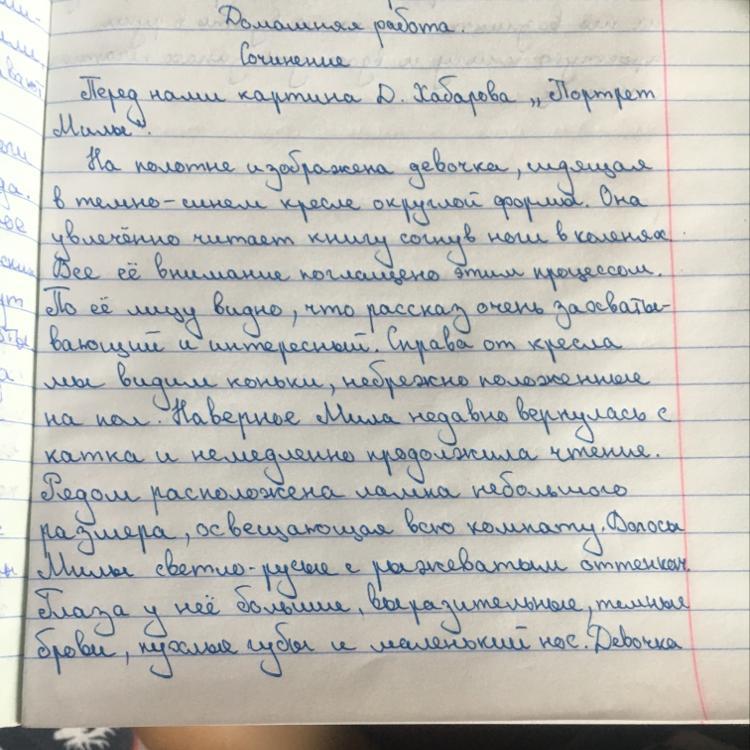 Домашняя работа.
Сочинение
Перед нами картина Д. Хабарова „Портрет
Милы".
На полотне изображена девочка, сидящая
в темно-синем кресле округлой формы. Она
увлечённо читает книгу согнув ноги в коленях.
Все её внимание поглащено этим процессом.
По её лицу видно, что рассказ очень захваты-
вающий и интересный. Справа от кресла
мы видим коньки, небрежно положенные
на пол. Наверное Мила недавно вернулась с
катка и немедленно продолжила чтение.
Рядом расположена лампа небольшого
размера, освещающая всю комнату. Волосы
Милы светло-русые с рыжеватым оттенком.
Глаза у неё большие, выразительные, темные
брови, пухлые губы и маленький нос. Девочка